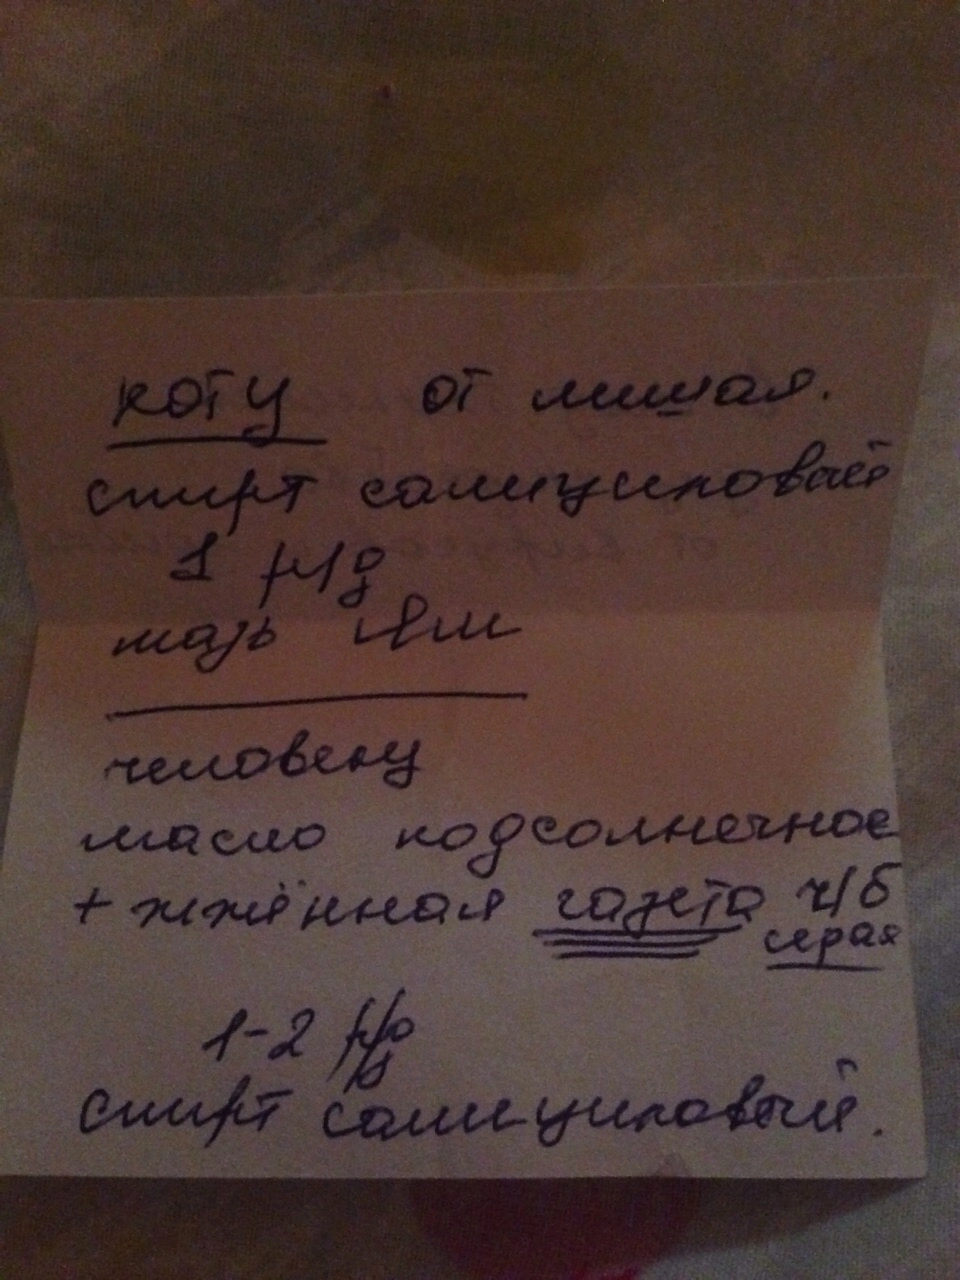 коту от лишая.
спирт салициловый
1 р/д
мазь Ям
человеку
масло подсолнечное
+ жжённая газета ч/б
серая
1-2 р/д
спирт салициловый.